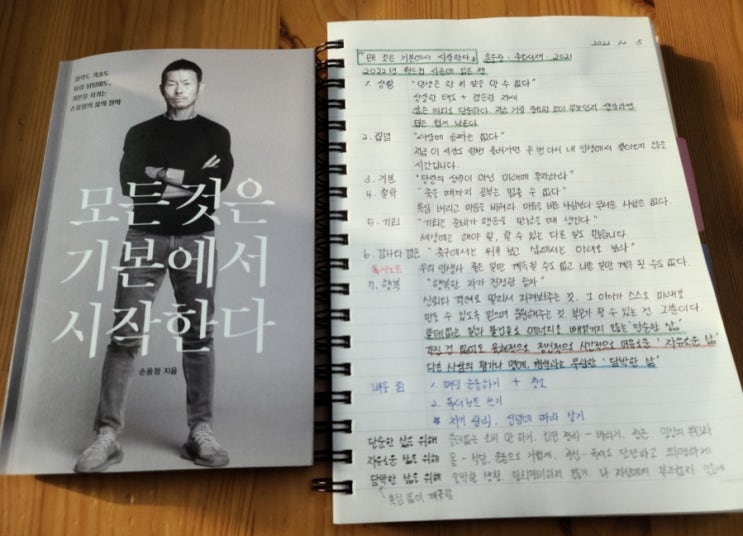 실력도 기술도
사람 됨됨이도,
기본을 지키는
손웅정의 삶의 철학
모든 것은
기본에서
시작한다
손웅정 지음
2022 12 5
『모든 것은 기본에서 시작한다』 손웅정 · 수오서재 · 2021
2022년 월드컵 시즌에 읽은 책
1. 성찰 "인생은 한 치 앞을 알 수 없다"
성실한 태도 + 겸손한 자세
삶은 의외로 단순하다. 지금 가장 중요한 것이 무엇인지 생각하면
답은 쉽게 나온다.
2. 집념 "세상에 공짜는 없다"
지금 이 시간도 한번 흘러가면 두 번 다시 내 인생에서 돌아오지 않을
시간입니다.
3. 기본 "당장의 성적이 아닌 미래에 투자하라"
4. 철학 "죽을 때까지 공부는 멈출 수 없다"
욕심 버리고 마음을 비워라. 마음을 비운 사람보다 무서운 사람은 없다.
5. 기회 "기회는 준비가 행운을 만났을 때 생긴다"
세상에는 해야 할, 할 수 있는 다른 일도 많습니다
6. 감사와 겸손 "축구에서는 위를 보고 삶에서는 아래를 보라"
독서노트 우리 인생사 좋은 일만 계속될 수도 없고 나쁜 일만 계속 될 수도 없다.
7. 행복 "행복한 자가 진정한 승자"
신뢰와 격려로 멀리서 지켜봐주는 것. 그 아이가 스스로 미래를
만들 수 있도록 믿으며 응원해주는 것. 부모가 할 수 있는 건 그뿐이다.
쓸데없는 일과 물건들로 에너지를 빼앗기지 않는 '단순한 삶'
걱정 건 없이도 육체적으로 정신적으로 시간적으로 여유로운 '자유로운 삶'
다른 사람의 평가나 멸시, 평판과는 무관한 '담박한 삶'
배울 점 1. 매일 운동하기 + 청소
2. 독서노트 쓰기
자기 관리, 신념에 따라 살기
단순한 삶을 위해 쓸데없는 소비 안 하기. 집안 정리 - 버리기.
자유로운 삶을 위해 몸 - 식단, 운동으로 가볍게. 정신 - 독서로 단단하고
담박한 삶을 위해 소박한 생활. 나 자신에게 부끄럽지 않게
욕심 없이 깨끗함